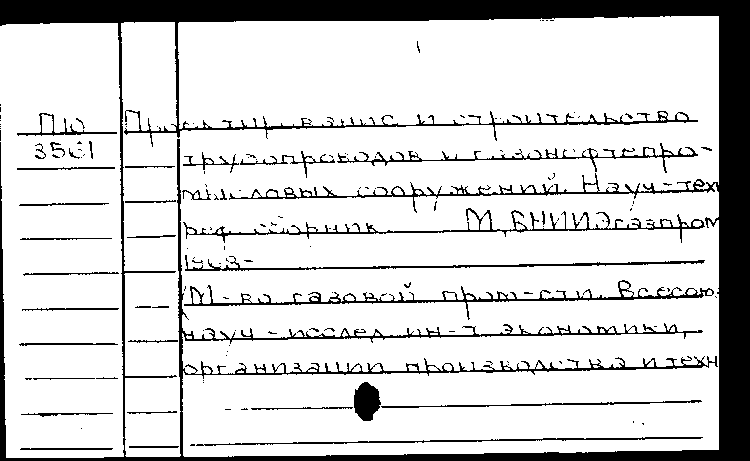 П10 Проектирование и строительство
3561 трубопроводов и газонефтепро-
мысловых сооружений. Науч-техн
реф. сборник. М, ВНИИЭгазпром
1968-
(М-во газовой пром-сти. Всесоюз
науч-исслед ин-т экономики,
организации производства и техн